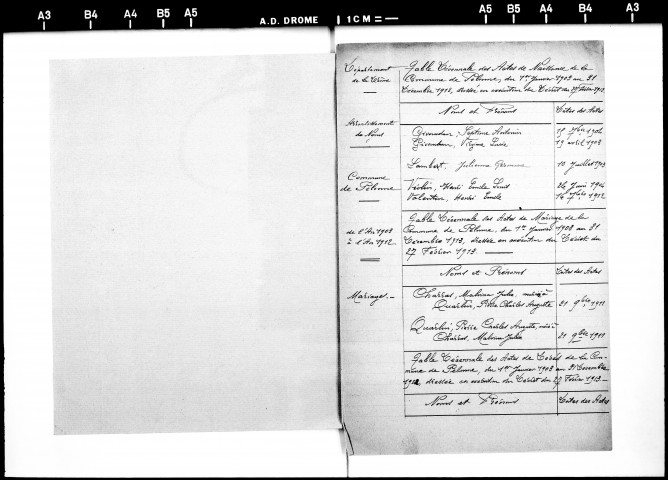 A3 B4 A4 B5 A5
A.D. DROME
1 CM =
A5 B5 A4 B4 A3
Département
de la Drôme
Table Décennale des Actes de Naissance de la
Commune de Pelonne, du 1er Janvier 1903 au 31
Décembre 1912, dressée en exécution du Décret du 27 Février 1913.
Noms et Prénoms
Dates des Actes
Arrondissement
de Nyons
Septime Antonin
19 avril 1903
Lambert, Julienne Germaine
10 Juillet 1903
Commune
de Pelonne
Henri Emile
24 Juin 1904
Valentin, Henri Emile
14 1912
de l'An 1903
à l'An 1912
Table Décennale des Actes de Mariage de la
Commune de Pelonne, du 1er Janvier 1903 au 31
Décembre 1913, dressée en exécution du Décret du
27 Février 1913.
Noms et Prénoms
Dates des Actes
Mariages
Charras, Malvina Julia, mariée à
Pierre Charles Auguste
21 9bre 1911
Pierre Charles Auguste, marié à
Charras, Malvina Julia
21 9bre 1911
Table Décennale des Actes de Décès de la Com-
mune de Pelonne, du 1er Janvier 1903 au 31 Décembre
1912 dressée en exécution du Décret du 27 Février 1913
Noms et Prénoms
Dates des Actes